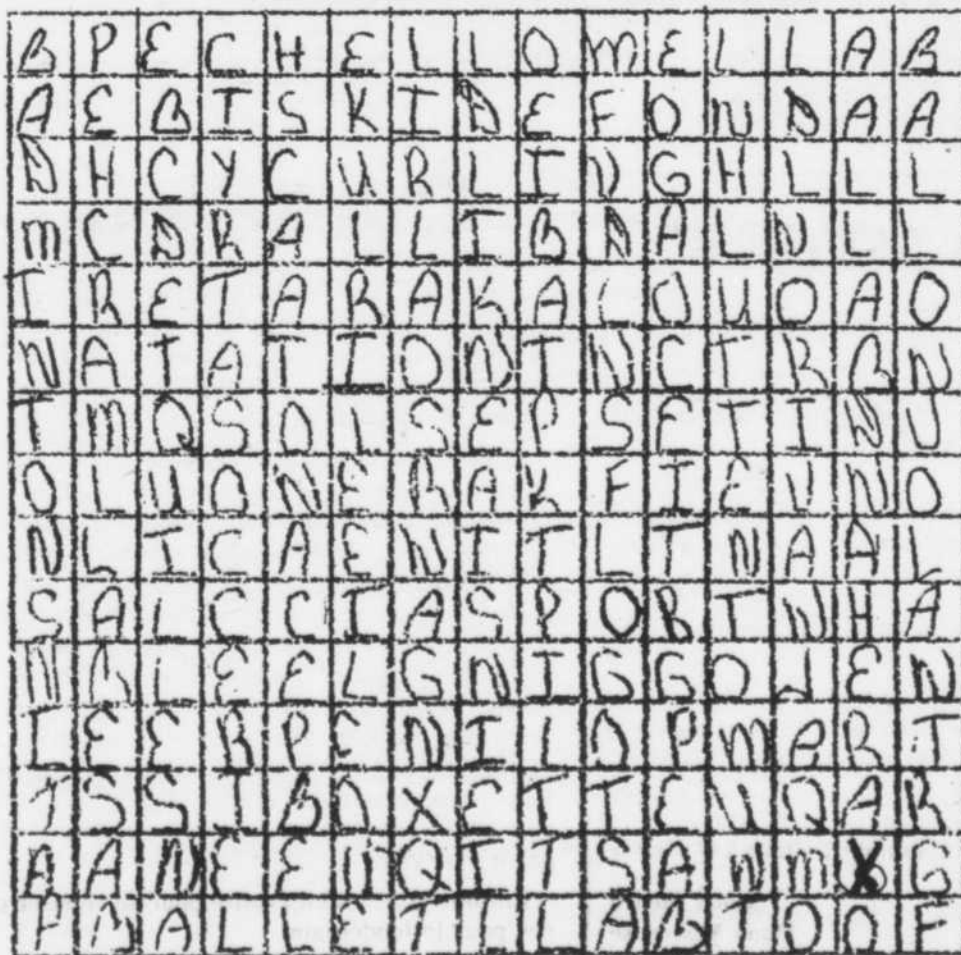 B P E C H E L L O M E L L A B
A E B I S K I D E F O N D A A
D H C Y C U R L I N G H L L L
M C D R A L L I B D A L N L L
I R E T A R A K A L O U O A O
N A T A T I O N I N C T R B N
T M Q S O L S E P S E T I N V
O L U O N E R A K F I E V N O
N L I C A E N I T L T N A A L
S A L C C I A S P O R T N H A
N B L E E L G N I G G O J E N
I E E R P E N I L O P M A R T
T S S I B O X E T T E U Q A R
A A N E E U Q I T S A N M Y G
P B A L L E T I L A B T O O F